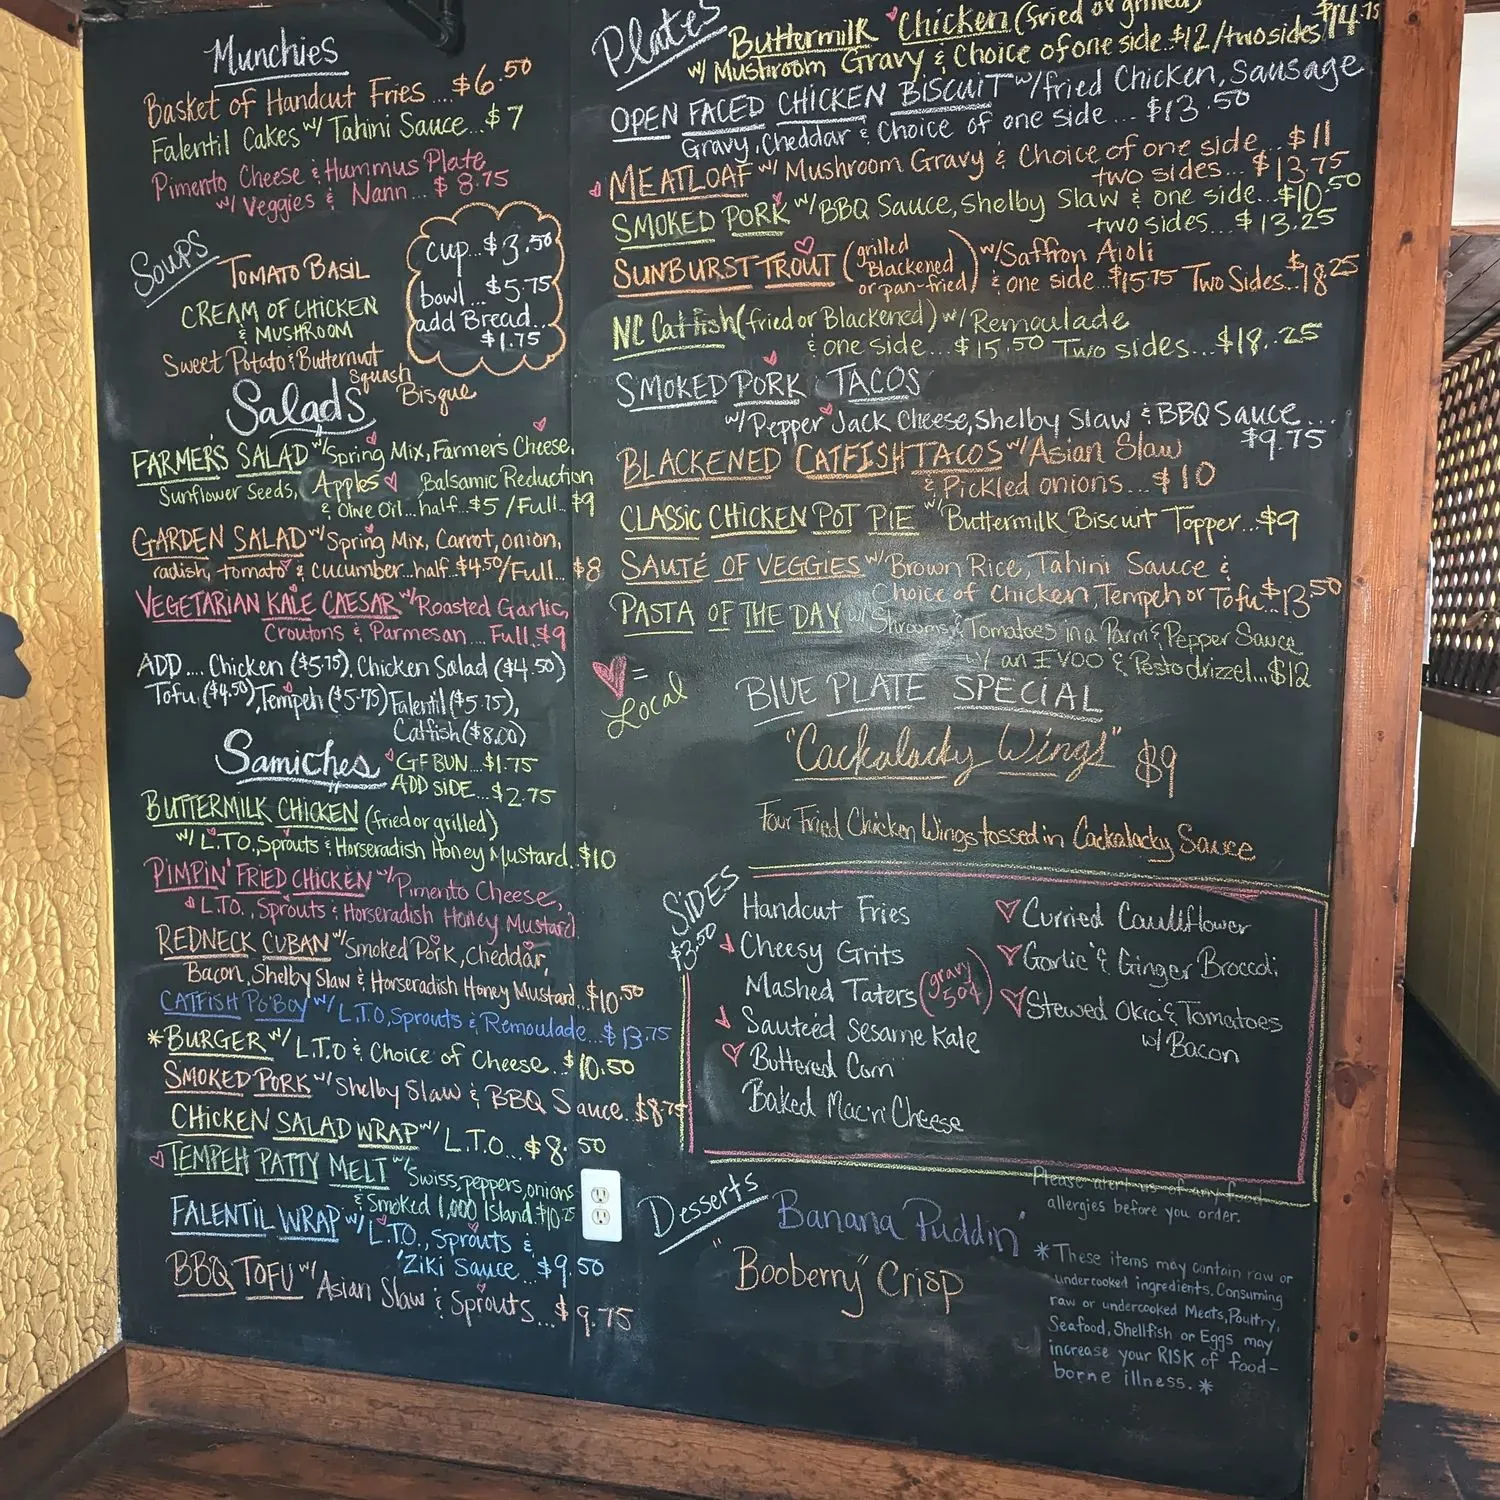 Munchies
Basket of Handcut Fries....$6.50
Falentil Cakes w/ Tahini Sauce...$7
Pimento Cheese & Hummus Plate
w/ Veggies & Nann...$8.75
Soups
TOMATO BASIL
CREAM OF CHICKEN
& MUSHROOM
Sweet Potato & Butternut
Squash
Bisque
cup...$3.50
bowl...$5.75
add Bread...
$1.75
Salads
FARMER'S SALAD w/ Spring Mix, Farmer's Cheese,
Sunflower Seeds, Apples Balsamic Reduction
& Olive Oil...half..$5/Full..$9
GARDEN SALAD w/ Spring Mix, Carrot, onion,
radish, tomato & cucumber...half..$4.50/Full...$8
VEGETARIAN KALE CAESAR w/ Roasted Garlic,
Croutons & Parmesan....Full $9
ADD....Chicken ($5.75), Chicken Salad ($4.50)
Tofu ($4.50), Tempeh ($5.75) Falentil ($5.75),
Catfish ($8.00)
Samiches
GF BUN...$1.75
ADD SIDE...$2.75
BUTTERMILK CHICKEN (fried or grilled)
w/ L.T.O, Sprouts & Horseradish Honey Mustard.$10
PIMPIN' FRIED CHICKEN w/ Pimento Cheese,
L.T.O., Sprouts & Horseradish Honey Mustard
REDNECK CUBAN w/ Smoked Pork, Cheddar,
Bacon, Shelby Slaw & Horseradish Honey Mustard...$10.50
CATFISH PO'BOY w/ L.T.O, Sprouts & Remoulade...$13.75
*BURGER w/ L.T.O & Choice of Cheese..$10.50
SMOKED PORK w/ Shelby Slaw & BBQ Sauce..$8.75
CHICKEN SALAD WRAP w/ L.T.O...$8.50
TEMPEH PATTY MELT w/ Swiss, peppers, onions
& Smoked 1,000 Island.$10.25
FALENTIL WRAP w/ L.T.O., Sprouts &
'Ziki Sauce...$9.50
BBQ TOFU w/ Asian Slaw & Sprouts...$9.75
Plates
Buttermilk Chicken (fried or grilled)
w/ Mushroom Gravy & Choice of one side..$12/two sides $14.75
OPEN FACED CHICKEN BISCUIT w/ fried Chicken, Sausage
Gravy, Cheddar & Choice of one side...$13.50
MEATLOAF w/ Mushroom Gravy & Choice of one side...$11
two sides...$13.75
SMOKED PORK w/ BBQ Sauce, Shelby Slaw & one side...$10.50
two sides...$13.25
SUNBURST TROUT (grilled Blackened or pan-fried) w/ Saffron Aioli
& one side...$15.75 Two Sides...$18.25
NC Catfish (fried or Blackened) w/ Remoulade
& one side...$15.50 Two sides...$18.25
SMOKED PORK TACOS
w/ Pepper Jack Cheese, Shelby Slaw & BBQ Sauce...
$9.75
BLACKENED CATFISH TACOS w/ Asian Slaw
& Pickled onions...$10
CLASSIC CHICKEN POT PIE w/ Buttermilk Biscuit Topper...$9
SAUTÉ OF VEGGIES w/ Brown Rice, Tahini Sauce &
Choice of Chicken, Tempeh or Tofu..$13.50
PASTA OF THE DAY w/ Shrooms & Tomatoes in a Parm & Pepper Sauce
w/ an EVOO & Pesto drizzel...$12
= Local
BLUE PLATE SPECIAL
"Cackalacky Wings" $9
Four Fried Chicken Wings tossed in Cackalacky Sauce
SIDES
$3.50
Handcut Fries
Cheesy Grits
Mashed Taters (gravy 50¢)
Sauteéd Sesame Kale
Buttered Corn
Baked Mac'n Cheese
Curried Cauliflower
Garlic & Ginger Broccoli
Stewed Okra & Tomatoes
w/ Bacon
Desserts
Banana Puddin'
"Booberry" Crisp
Please alert us of any food
allergies before you order.
*These items may contain raw or
undercooked ingredients. Consuming
raw or undercooked Meats, Poultry,
Seafood, Shellfish or Eggs may
increase your RISK of food-
borne illness.*